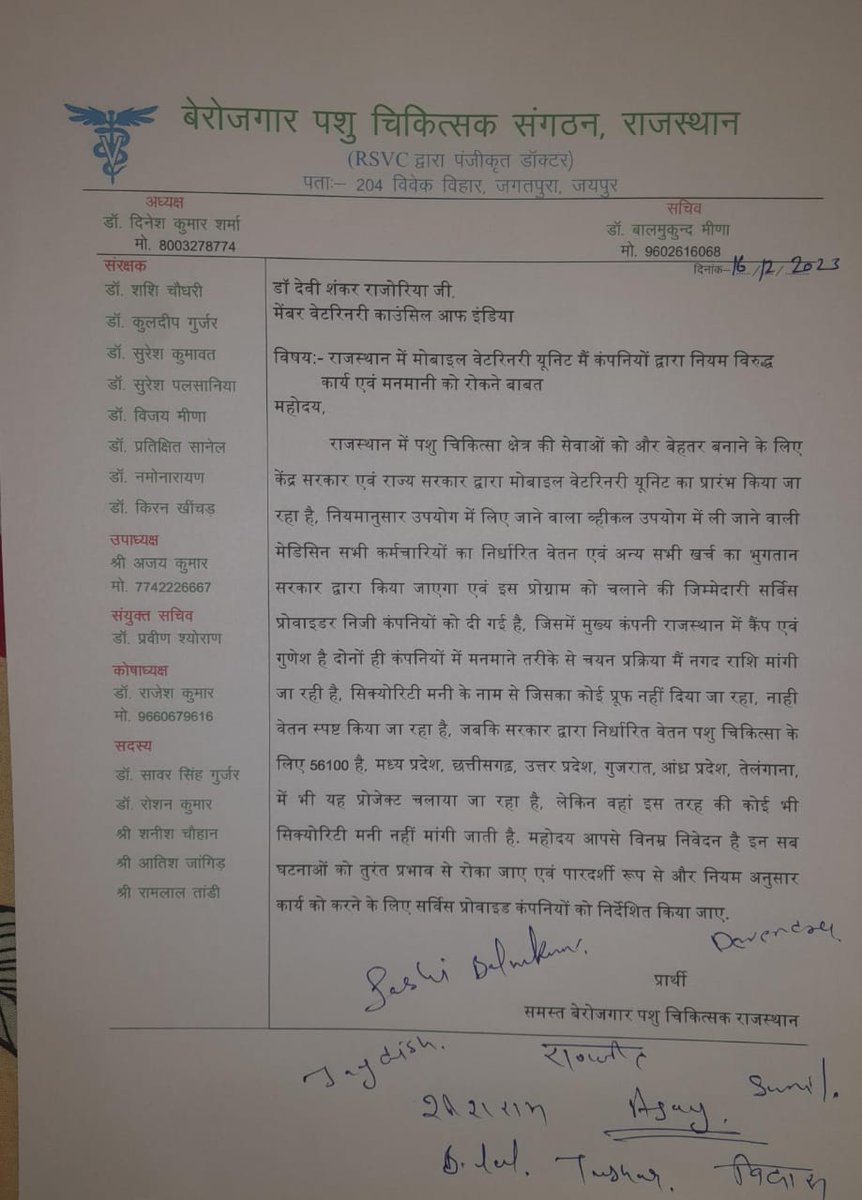 बेरोजगार पशु चिकित्सक संगठन, राजस्थान
(RSVC द्वारा पंजीकृत डॉक्टर)
पताः– 204 विवेक विहार, जगतपुरा, जयपुर
अध्यक्ष
डॉ. दिनेश कुमार शर्मा
मो. 8003278774
सचिव
डॉ. बालमुकुन्द मीणा
मो. 9602616068
दिनांक–16/12/2023
संरक्षक
डॉ. शशि चौधरी
डॉ. कुलदीप गुर्जर
डॉ. सुरेश कुमावत
डॉ. सुरेश पलसानिया
डॉ. विजय मीणा
डॉ. प्रतिक्षित सानेल
डॉ. नमोनारायण
डॉ. किरन खींचड़
उपाध्यक्ष
श्री अजय कुमार
मो. 7742226667
संयुक्त सचिव
डॉ. प्रवीण श्योराण
कोषाध्यक्ष
डॉ. राजेश कुमार
मो. 9660679616
सदस्य
डॉ. सावर सिंह गुर्जर
डॉ. रोशन कुमार
श्री शनीश चौहान
श्री आतिश जांगिड़
श्री रामलाल तांडी
डॉ देवी शंकर राजोरिया जी,
मेंबर वेटरिनरी काउंसिल आफ इंडिया
विषय:- राजस्थान में मोबाइल वेटरिनरी यूनिट मैं कंपनियों द्वारा नियम विरुद्ध
कार्य एवं मनमानी को रोकने बाबत
महोदय,
राजस्थान में पशु चिकित्सा क्षेत्र की सेवाओं को और बेहतर बनाने के लिए
केंद्र सरकार एवं राज्य सरकार द्वारा मोबाइल वेटरिनरी यूनिट का प्रारंभ किया जा
रहा है, नियमानुसार उपयोग में लिए जाने वाला व्हीकल उपयोग में ली जाने वाली
मेडिसिन सभी कर्मचारियों का निर्धारित वेतन एवं अन्य सभी खर्च का भुगतान
सरकार द्वारा किया जाएगा एवं इस प्रोग्राम को चलाने की जिम्मेदारी सर्विस
प्रोवाइडर निजी कंपनियों को दी गई है, जिसमें मुख्य कंपनी राजस्थान में कैंप एवं
गुणेश है दोनों ही कंपनियों में मनमाने तरीके से चयन प्रक्रिया मैं नगद राशि मांगी
जा रही है, सिक्योरिटी मनी के नाम से जिसका कोई प्रूफ नहीं दिया जा रहा, नाही
वेतन स्पष्ट किया जा रहा है, जबकि सरकार द्वारा निर्धारित वेतन पशु चिकित्सा के
लिए 56100 है, मध्य प्रदेश, छत्तीसगढ़, उत्तर प्रदेश, गुजरात, आंध्र प्रदेश, तेलंगाना,
में भी यह प्रोजेक्ट चलाया जा रहा है, लेकिन वहां इस तरह की कोई भी
सिक्योरिटी मनी नहीं मांगी जाती है. महोदय आपसे विनम्र निवेदन है इन सब
घटनाओं को तुरंत प्रभाव से रोका जाए एवं पारदर्शी रूप से और नियम अनुसार
कार्य को करने के लिए सर्विस प्रोवाइड कंपनियों को निर्देशित किया जाए.
प्रार्थी
समस्त बेरोजगार पशु चिकित्सक राजस्थान
Jagdish.
Sunil.
Ajay.
Tushar.
विकास